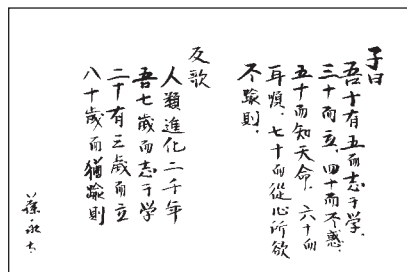 子曰
吾十有五而志于学.
三十而立.四十而不惑.
五十而知天命.六十而
耳順.七十而從心所欲
不踰則.
反歌
人類進化二千年
吾七歳而志于学
二十有三歳而立
八十歳而猶踰則